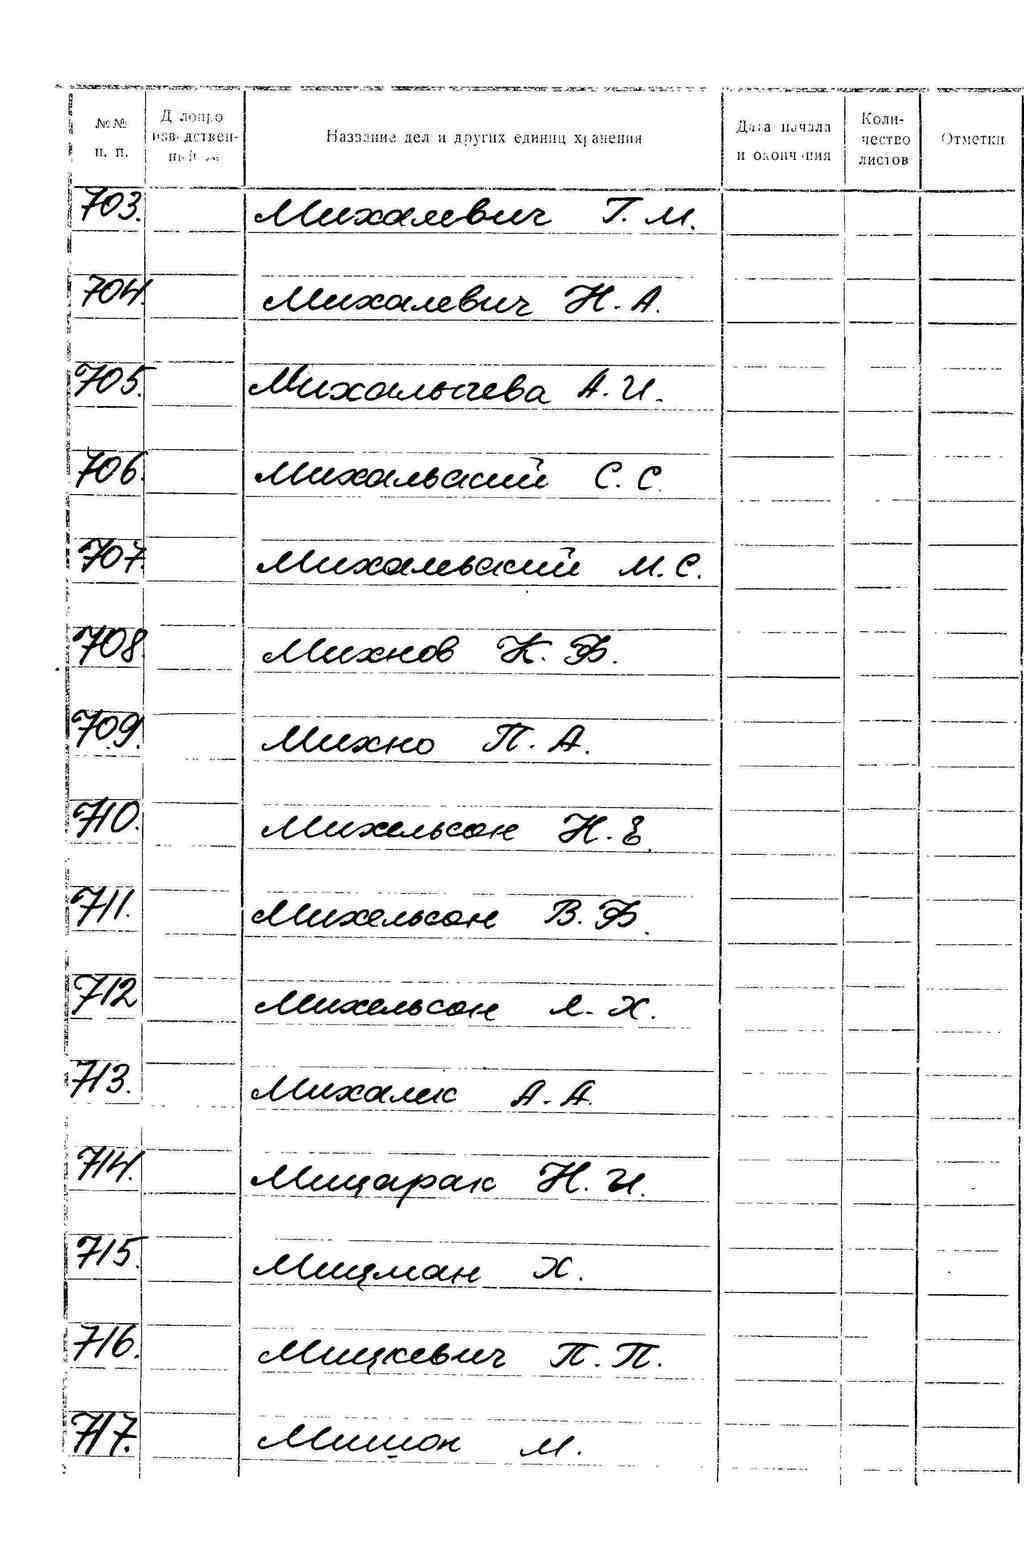 №№ п. п.
Делопроизводственный №
Название дел и других единиц хранения
Дата начала и окончания
Количество листов
Отметки
703. Михалевич Г. М.
704. Михалевич Н. А.
705. Михальчева А. И.
706. Михальский С. С.
707. Михальский М. С.
708. Михнов К. Ф.
709. Михно П. А.
710. Михельсон Н. Е.
711. Михельсон В. Ф.
712 Михельсон Л. Х.
713. Михалек А. А.
714. Мицарак Н. И.
715. Мицман Х.
716. Мицкевич П. П.
717. Мишон М.